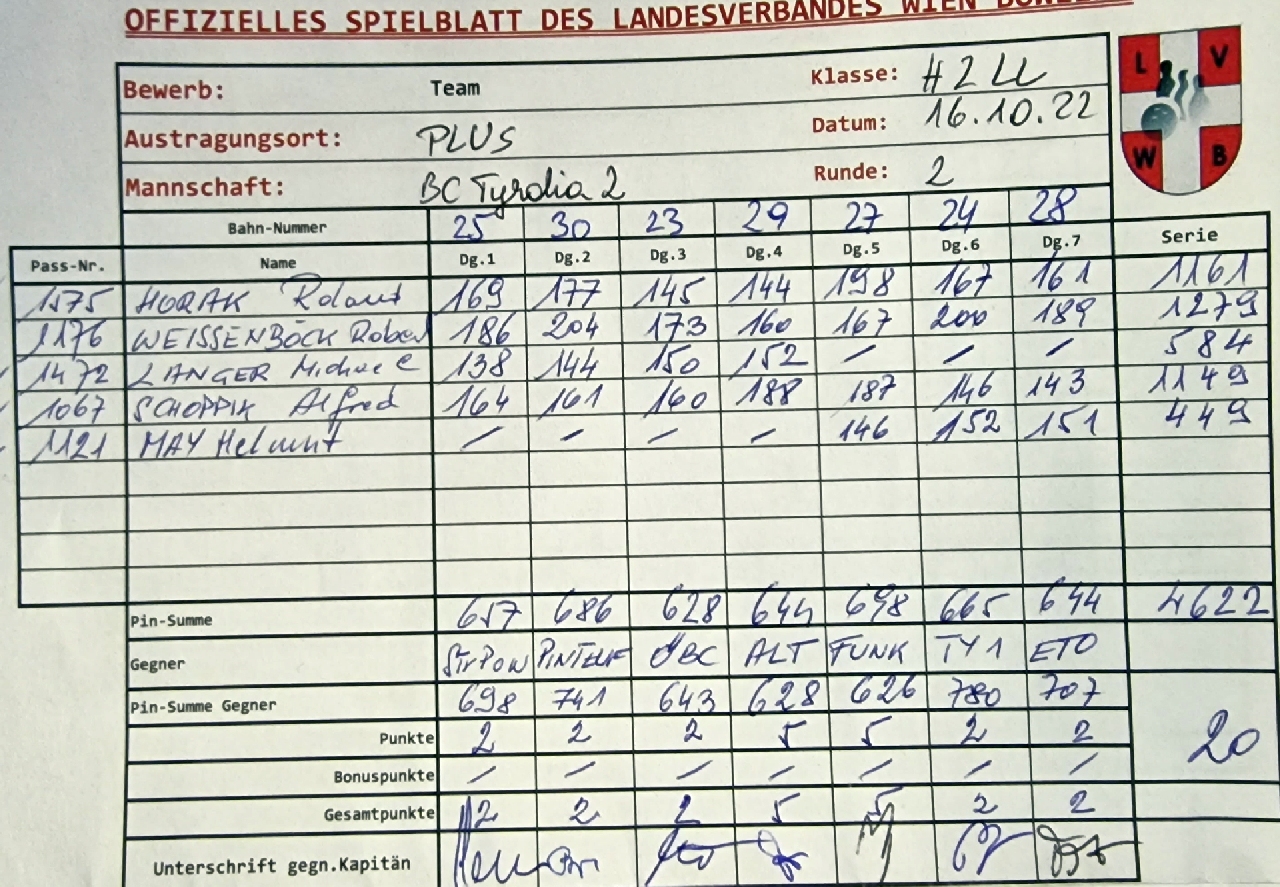 OFFIZIELLES SPIELBLATT DES LANDESVERBANDES WIEN
L V W B
Bewerb: Team Klasse: H2 LL
Austragungsort: PLUS Datum: 16.10.22
Mannschaft: BC Tyrolia 2 Runde: 2
Bahn-Nummer 25 30 23 29 27 24 28
Pass-Nr. Name Dg.1 Dg.2 Dg.3 Dg.4 Dg.5 Dg.6 Dg.7 Serie
HORAK Roland 169 177 145 144 198 167 161 1161
1176 WEISSENBÖCK Robert 186 204 173 160 167 200 189 1279
1472 LANGER Michael 138 144 150 152 / / / 584
1067 SCHOPPIK Alfred 164 161 160 188 187 146 143 1149
1121 MAY Helmut / / / / 146 152 151 449
Pin-Summe 657 686 628 644 698 665 644 4622
Gegner STRPOW ÖBC ALT FUNK TY 1 ETO
Pin-Summe Gegner 698 741 643 628 626 780 707
Punkte 2 2 2 5 5 2 2 20
Bonuspunkte / / / / / / /
Gesamtpunkte 2 2 2 5 5 2 2
Unterschrift gegn.Kapitän